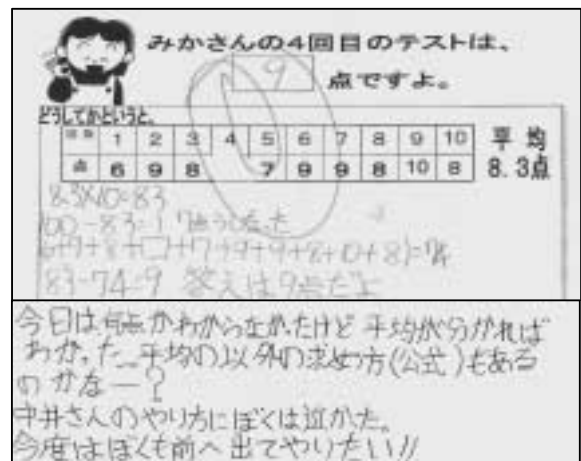 みかさんの4回目のテストは、
9 点ですよ。
どうしてかというと、
回数 1 2 3 4 5 6 7 8 9 10 平均
点 6 9 8 7 9 9 8 10 8 8.3点
8.3×10=83
100-83=17
6+9+8+□+7+9+9+8+10+8)=74
83-74=9 答えは9点だよ
今日は何点かわからなかたけど平均が分かれば
わかった。平均の以外の求め方(公式)もある
のかなー?
中井さんのやり方にぼくは近かた。
今度はぼくも前へ出てやりたい!!